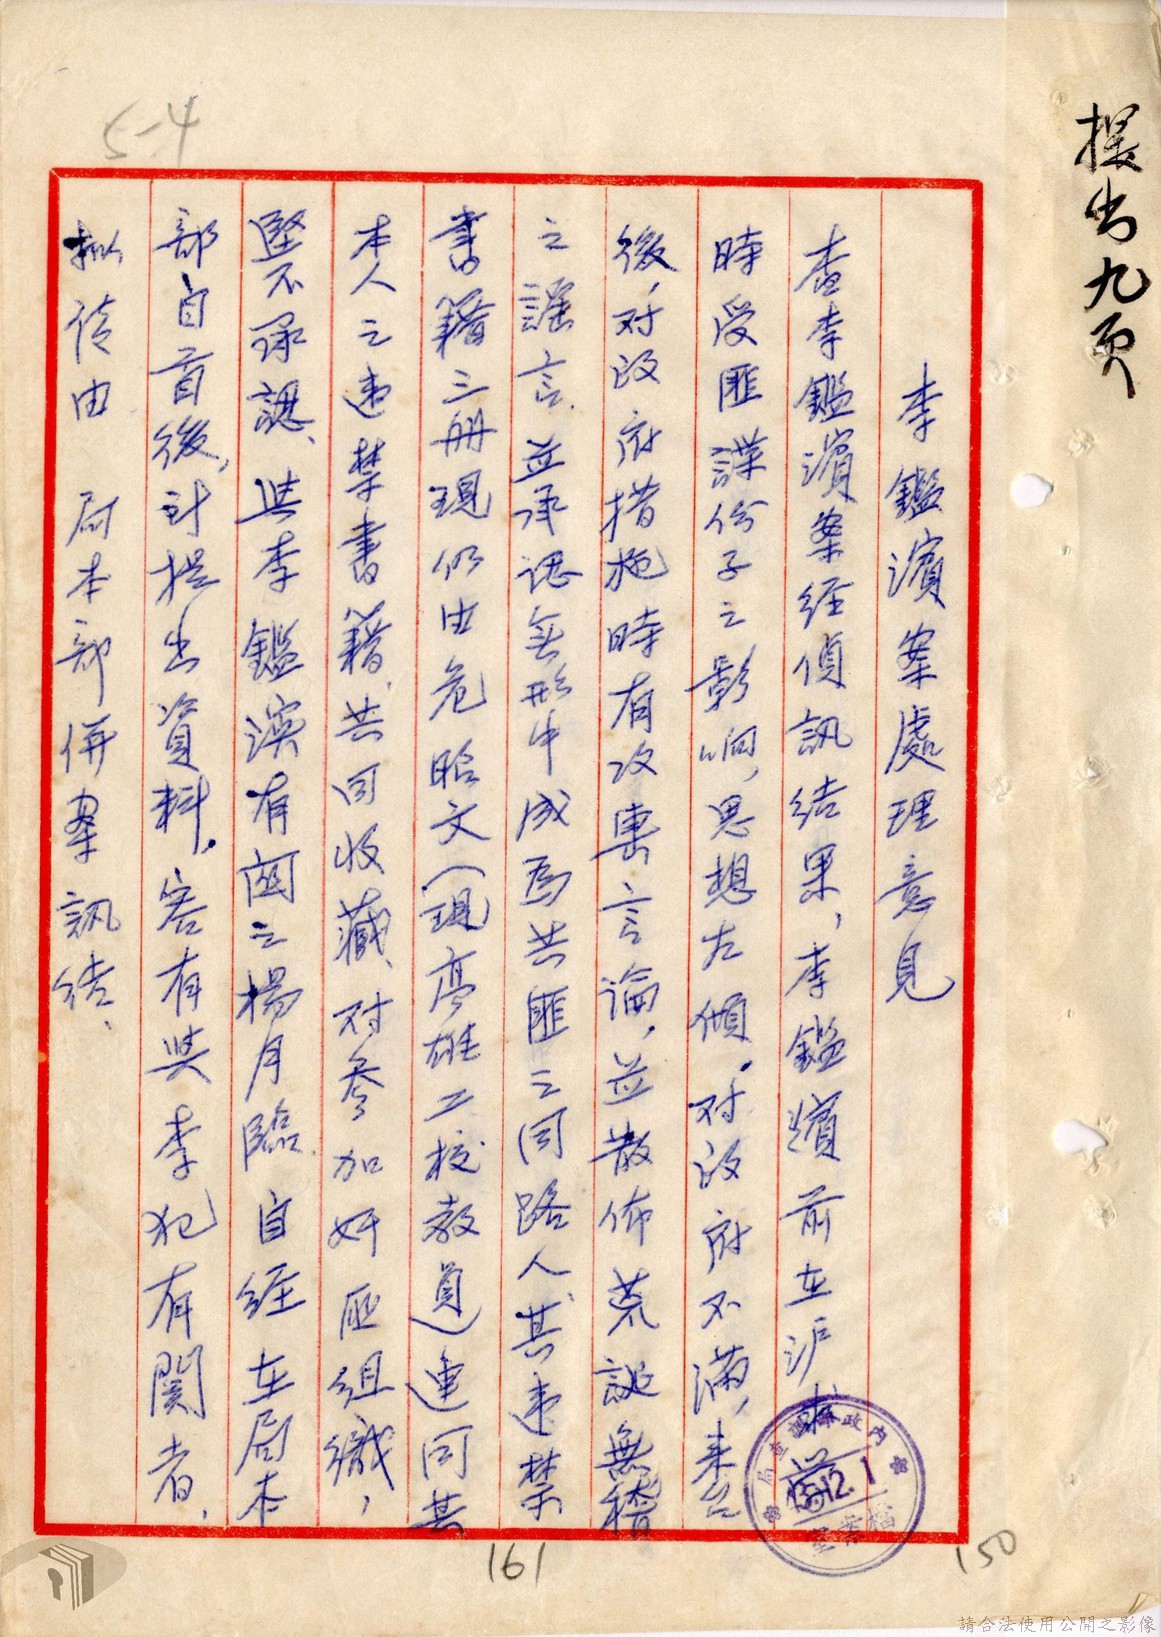 提出九頁
5-4
李鑑濱案處理意見
查李鑑濱案经偵訊结果，李鑑濱前在沪
時受匪諜份子之影响，思想左傾。对政府不滿，来台
後，对政府措施時有攻击言論，並散佈荒誕無稽
之謠言、並承認無形中成為共匪之同路人、其违禁
書籍三册現仍由危昭文（現高雄工校教員）連同其
本人之违禁書籍、共同收藏、对参加奸匪組織，
堅不承認、與李鑑濱有関之楊月臨自经在局本
部自首後，計提出資料，
客有與李犯有関者，
拟
由
局本部併案訊结、
內政部調查局
12.1
檔案室
161
150
請合法使用公開之影像